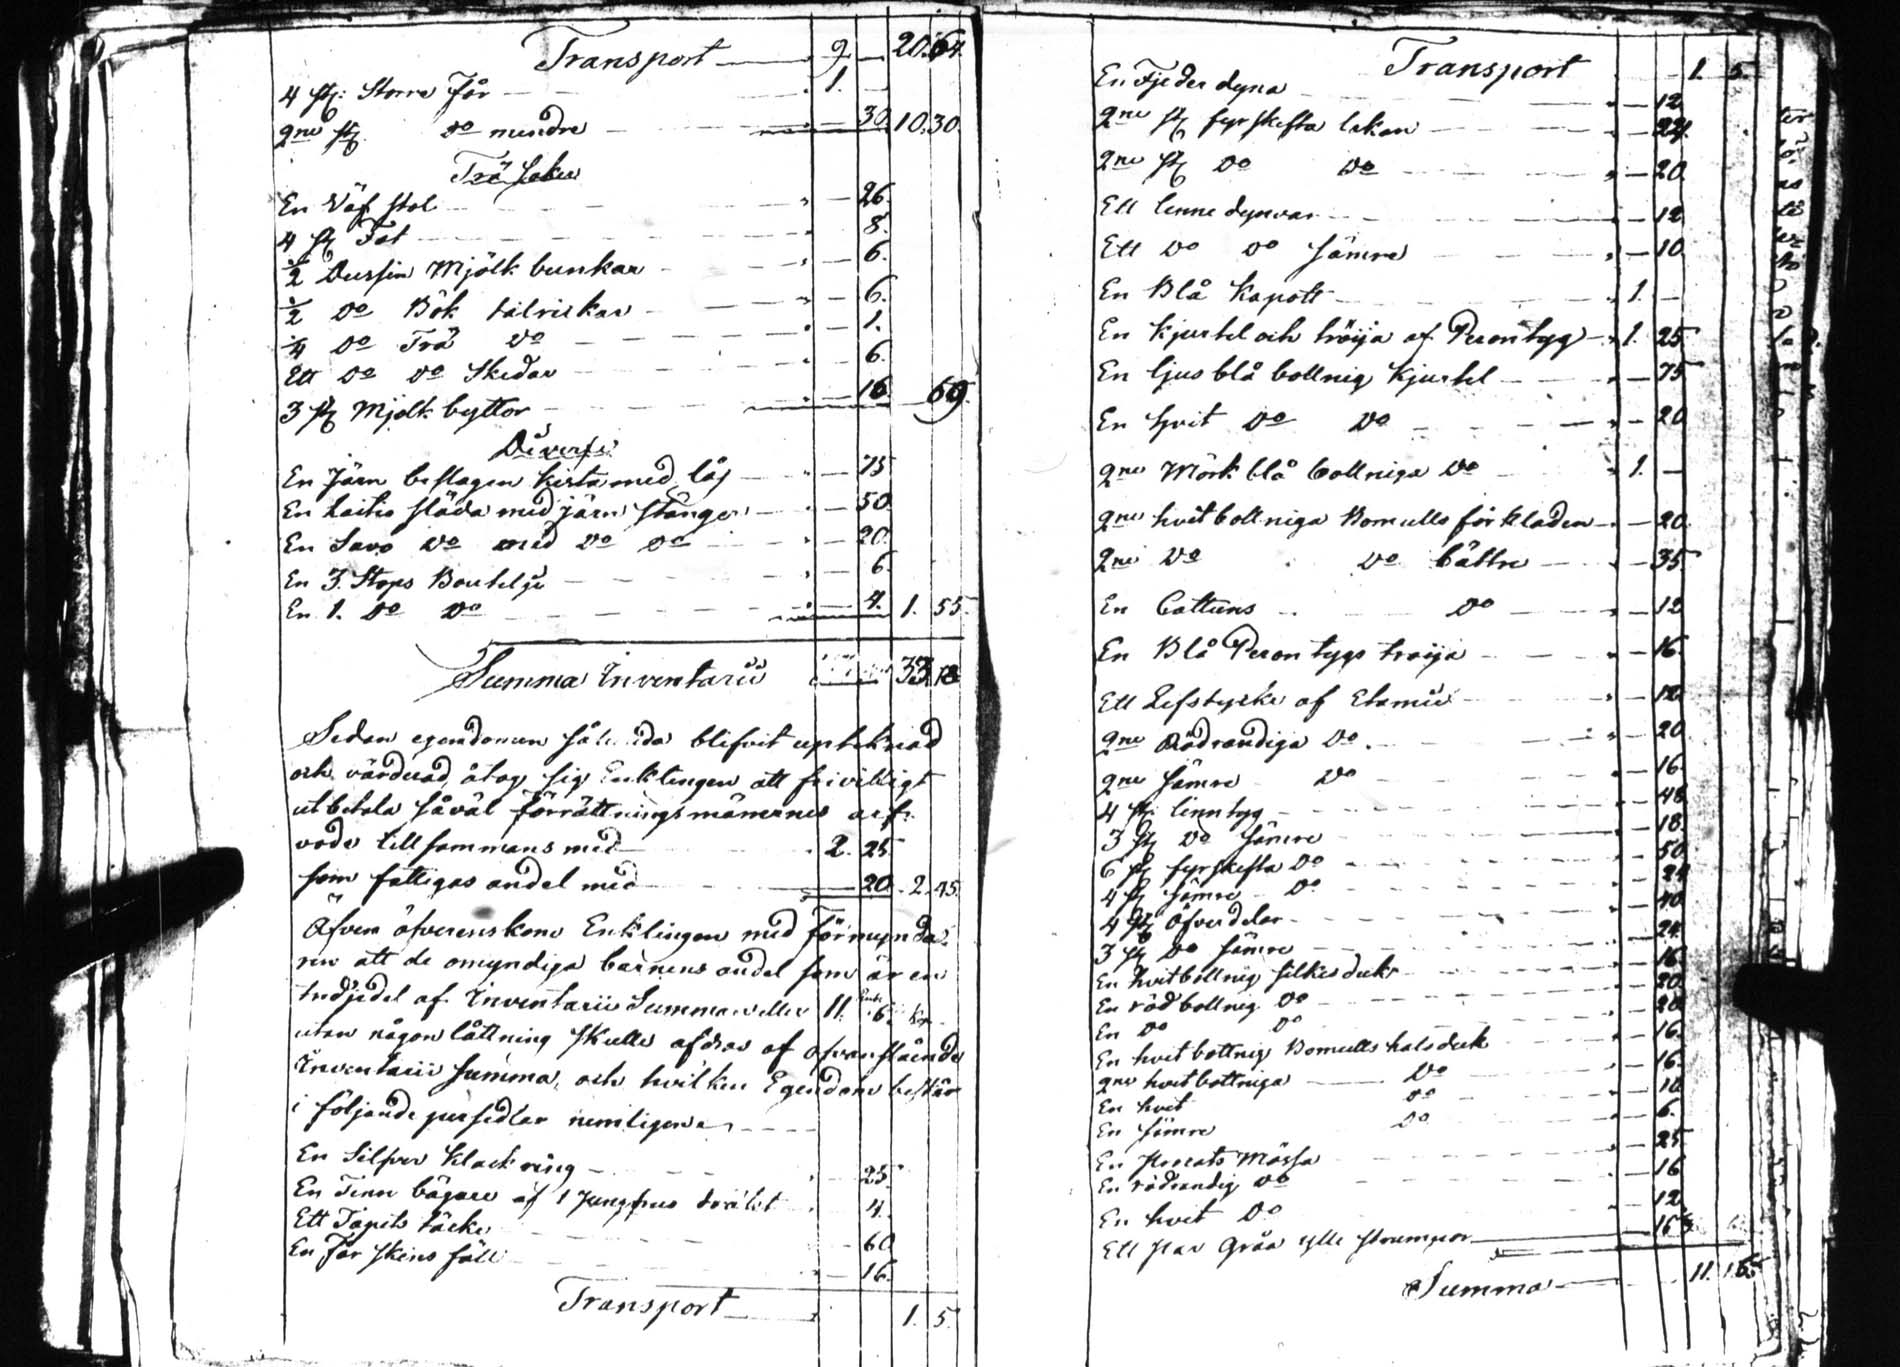 Transport 9. 20.64.
4 st: Storre Får 1.
2ne st do mindre 30. 10.30.
Trä saker
En Väf stol 26.
4 st Fat 8.
1/2 Dussin Mjölk bunkar 6.
1/2 do Bök talrickar 6.
1/4 do Trä do 1.
Ett do do Skedar 6.
3 st Mjolk byttor 16. 69.
Diverse
En Järn beslagen kista med lås 75
En släda med järn stänger 50.
En Savo do med do do 20.
En 3. Stops Boutelje 6.
En 1. do do 4. 1. 55.
Summa Inventarii 33.18
Sedan egendomen blifvit upteknad
och värderad, åtog sig Enklingen att frivilligt
utbetala såväl förrättningsmännernes arf-
vode tillsammans med 2. 25.
som fattigas andel med 20. 2.45.
Äfven öfverenskom Enklingen med Förmynda-
ren att de omyndiga barnens andel som är en
tredjedel af Inventarii Summan eller 11. 6. kp.
utan någon låttning skulle afdras af ofvanstående
Inventarii summa, och hvilken Egendom består
i följande persedlar nemligen
En Silfver klack ring 25.
En Tenn bägare af 1 Jungfrus 4.
Ett Tapits täcke 60
En Får skins fäll 16.
Transport 1. 5.
Transport 1. 5.
En Fjeder dyna 12
2ne st fyrskefta lakan 24.
2ne st do do 20
Ett linne dynvar 12
Ett do do sämre 10
En Blå Kapott 1.
En kjortel och tröija af Peron tyg 1. 25
En ljus blå bottnig kjortel 75
En hvit do do 20
2ne Mörk blå bottniga do 1.
2ne hvit bottniga Bomulls förkläden 20.
2ne do do bättre 35
En Cattuns do 12
En Blå Peron tygs tröija 16
Ett Lifstycke af Etamin 12
2ne Rödrandiga do 20
2ne sämre do 16.
4 st linntyg 48
3 st do sämre 18.
6 st fyrskefta do 50
4 st sämre do 24
4 st öfverdelar 40
3 st do sämre 24.
En hvitbottnig silkesduk 16.
En röd bottnig do 20.
En do do 20
En hvit bottnig Bomulls halsduk 16.
2ne hvitbottniga do 16.
En hvit do 10
En sämre do 6.
En Mössa 25
En rödrandig do 16
En hvit do 12
Ett par Gråa ylle strumpor
Summa 11.